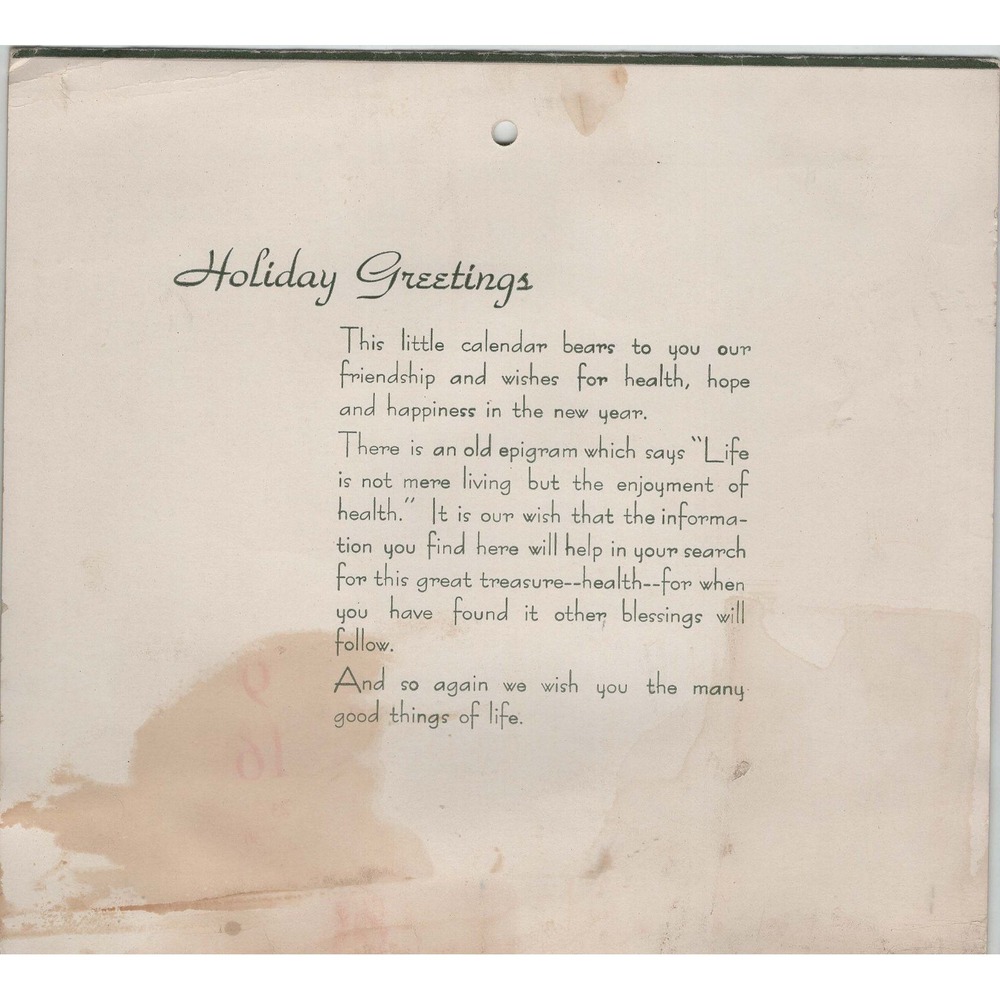 Holiday Greetings
This little calendar bears to you our
friendship and wishes for health, hope
and happiness in the new year.
There is an old epigram which says "Life
is not mere living but the enjoyment of
health." It is our wish that the informa-
tion you find here will help in your search
for this great treasure--health--for when
you have found it other blessings will
follow.
And so again we wish you the many
good things of life.
9
16